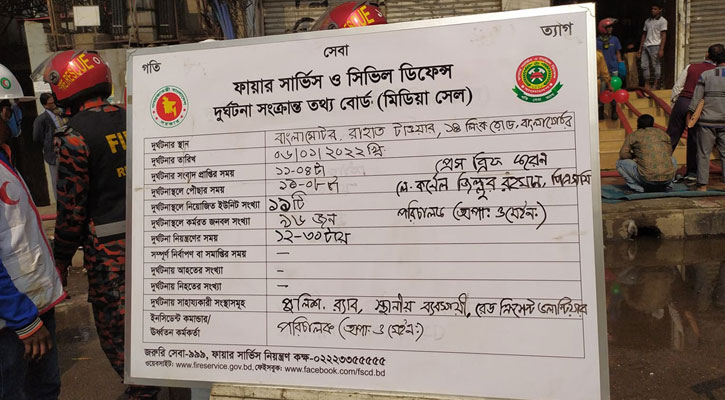 সেবা
গতি
ত্যাগ
ফায়ার সার্ভিস ও সিভিল ডিফেন্স
দুর্ঘটনা সংক্রান্ত তথ্য বোর্ড (মিডিয়া সেল)
দুর্ঘটনার স্থান বাংলামোটর, রাহাত টাওয়ার, ১৪ লিংক রোড, বাংলামোটর
দুর্ঘটনার তারিখ ০৬/০১/২০২২খ্রি
দুর্ঘটনার সংবাদ প্রাপ্তির সময় ১১-০৪টা প্রেস ব্রিফ করেন
দুর্ঘটনাস্থলে পৌছার সময় লে. কর্নেল জিল্লুর রহমান, পিএসসি
দুর্ঘটনাস্থলে নিয়োজিত ইউনিট সংখ্যা ১১টি পরিচালক (অপাঃ ও মেইনঃ)
দুর্ঘটনাস্থলে কর্মরত জনবল সংখ্যা ৯৬ জন
দুর্ঘটনা নিয়ন্ত্রণের সময় ১২-৩০টায়
সম্পূর্ণ নির্বাপণ বা সমাপ্তির সময় –
দুর্ঘটনায় আহতের সংখ্যা –
দুর্ঘটনায় নিহতের সংখ্যা –
দুর্ঘটনায় সাহায্যকারী সংস্থাসমূহ পুলিশ, র‍্যাব, স্থানীয় ব্যবসায়ী, রেড ক্রিসেন্ট ভলান্টিয়ার
ইনসিডেন্ট কমান্ডার/
ঊর্ধ্বতন কর্মকর্তা পরিচালক (অপাঃ ও মেইনঃ)
জরুরি সেবা-৯৯৯, ফায়ার সার্ভিস নিয়ন্ত্রণ কক্ষ-০২২২৩৩৫৫৫৫৫
ওয়েবসাইট: www.fireservice.gov.bd, ফেইসবুক: www.facebook.com/fscd.bd